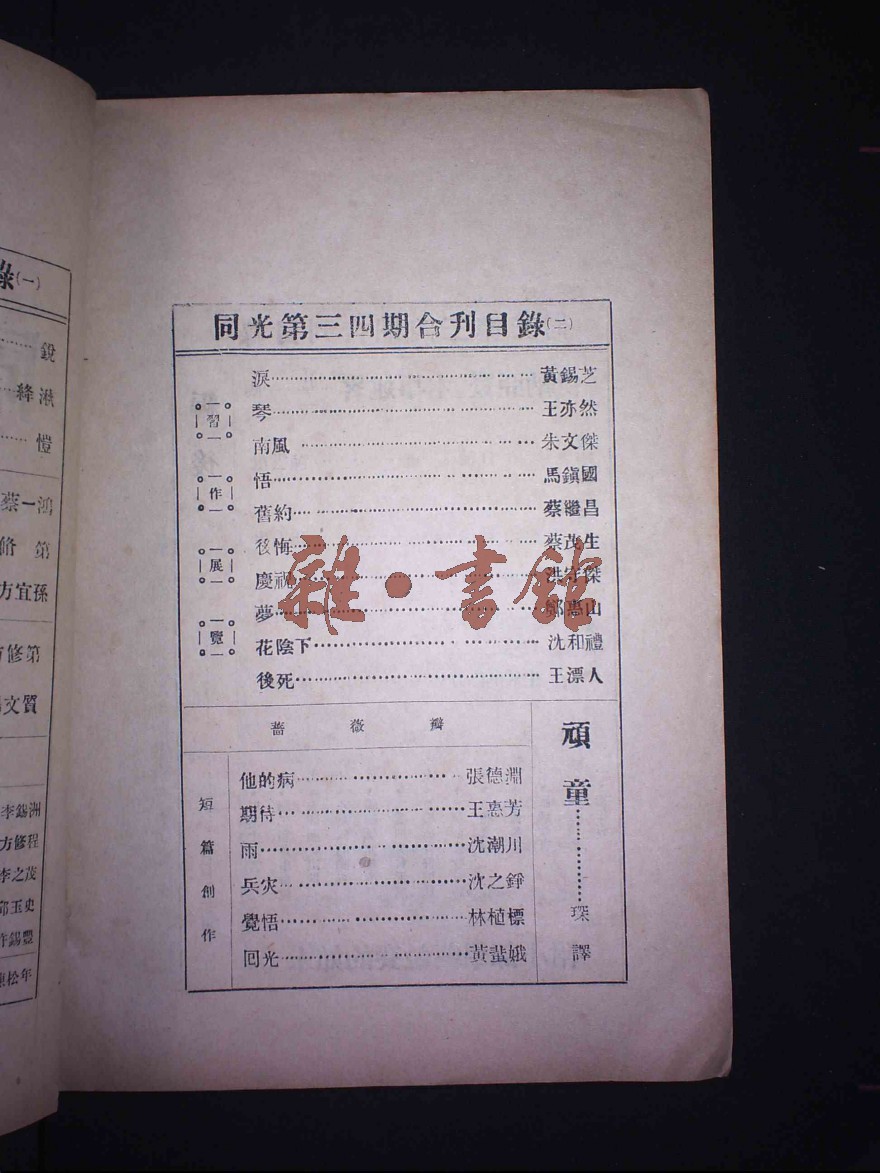 錄(一)
銳
絳湫
愷
蔡一鴻
第
方宜孫
方修第
文質
李錫洲
方修程
李之茂
邱玉史
許錫豐
松年
同光第三四期合刊目錄(二)
習作展覽
淚……黃錫芝
琴……王亦然
南風……朱文傑
悟……馬鎭國
舊約……蔡繼昌
後悔……蔡茂生
慶祝……洪守傑
夢……鄭惠山
花陰下……沈和禮
後死……王漂人
薔薇瓣
短篇創作
他的病……張德淵
期待……王惠芳
雨……沈潮川
兵灾……沈之錚
覺悟……林植標
囘光……黃蜚娥
頑童……琛譯
雜·書館